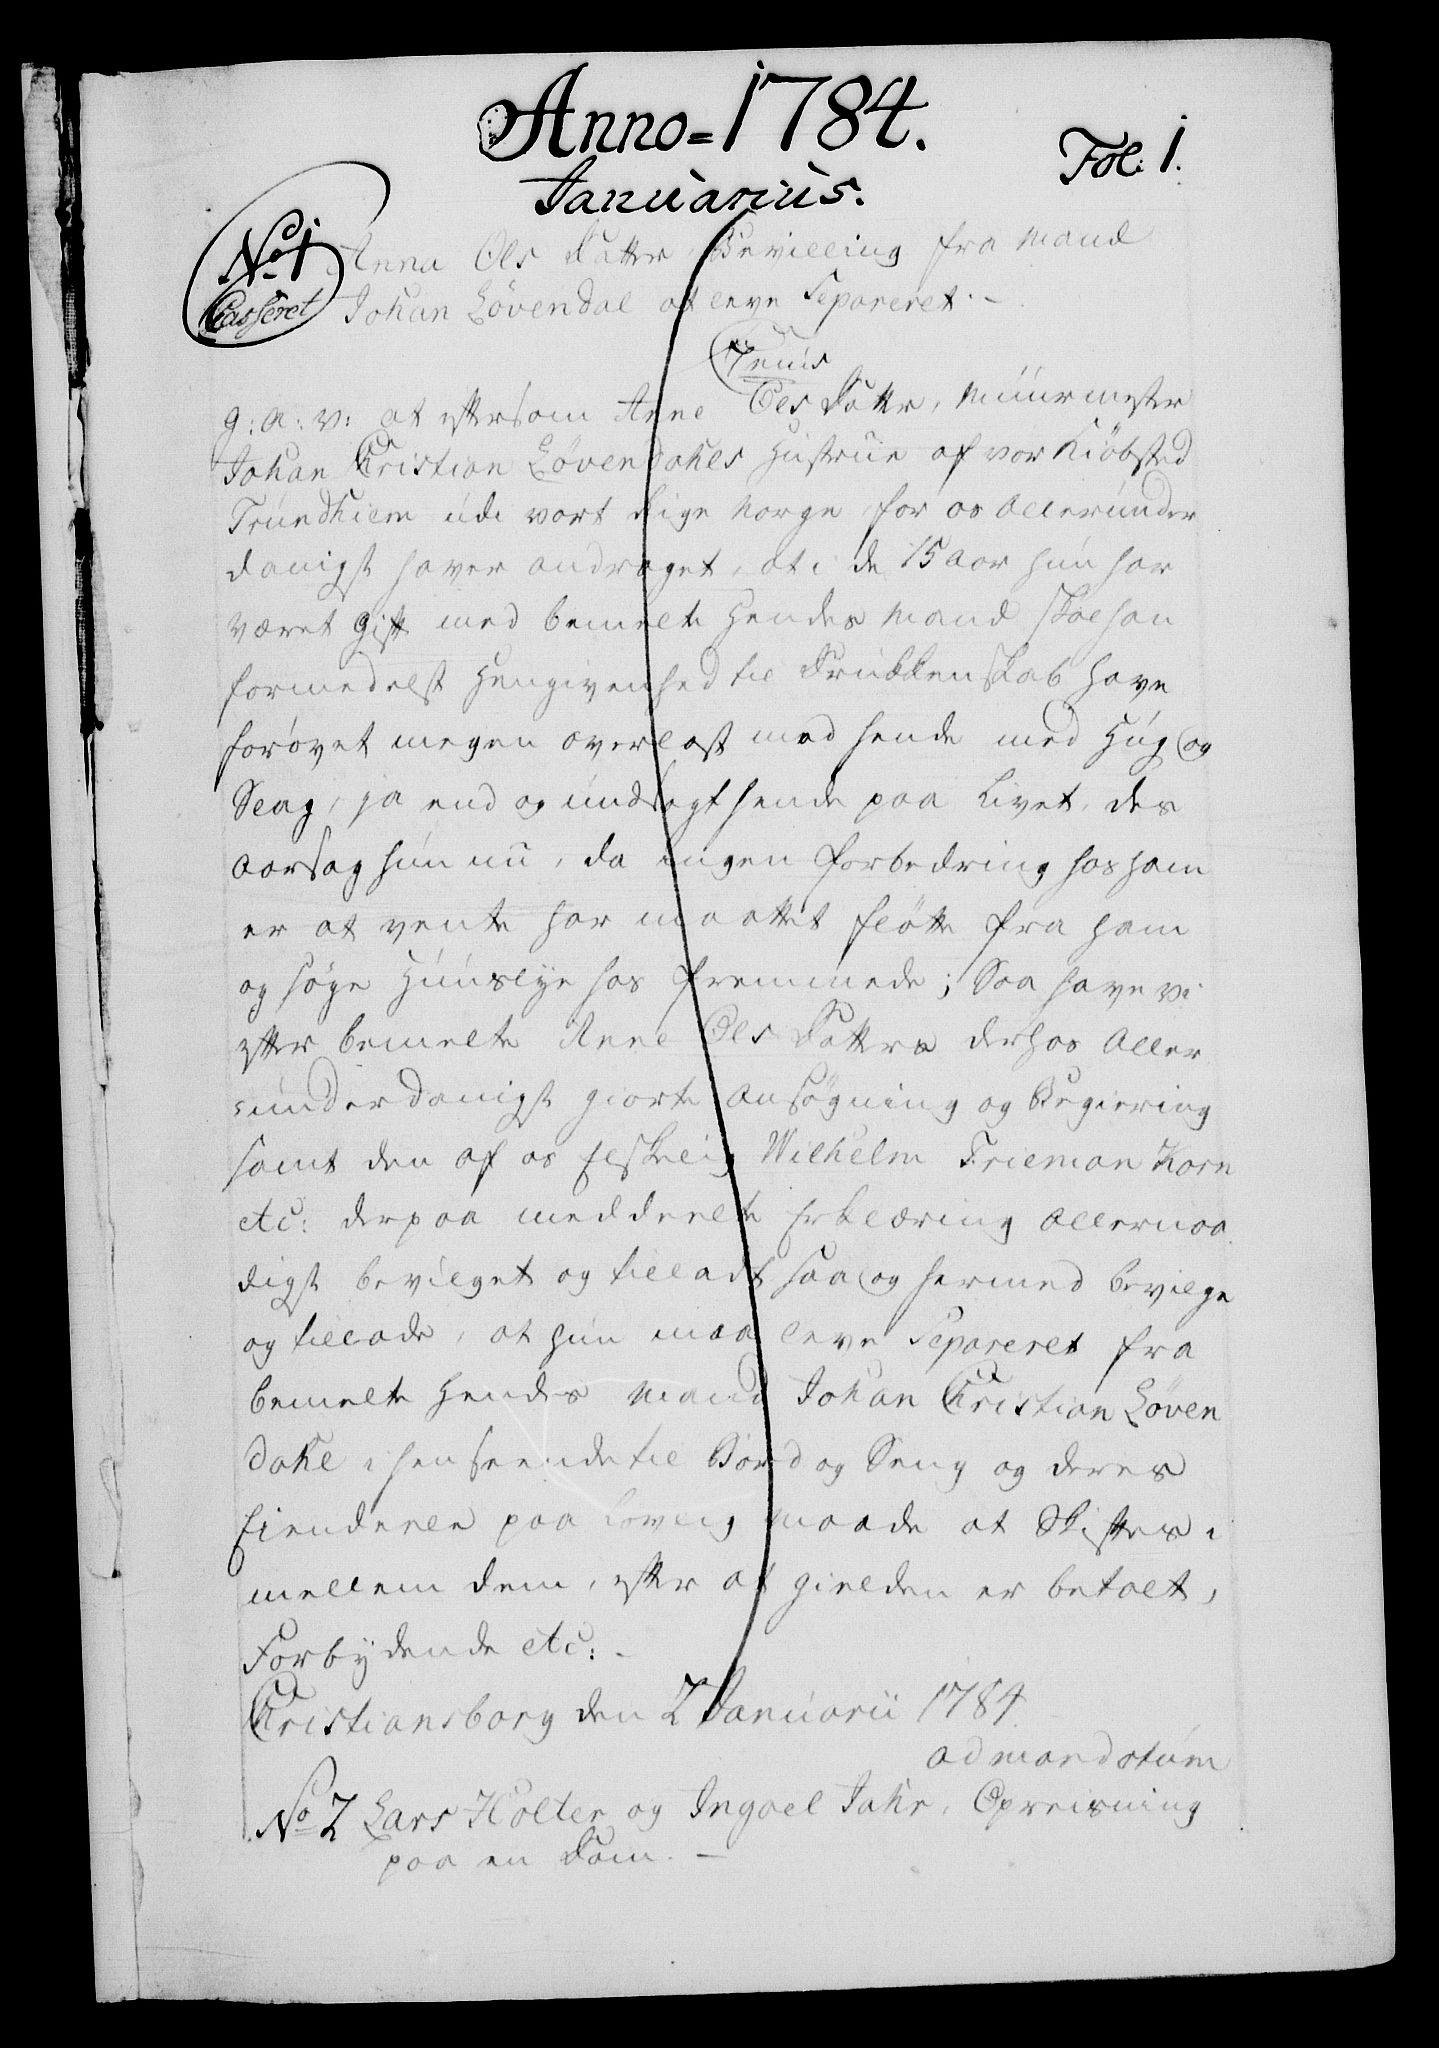 Anno = 1784.
Fol: 1.
Januarius.
No 1
Casseret
Anna Ols Datter Bevilling fra Mand
Johan Lövendal at leve Separeret. -
g: a: v: at eftersom Anne Ols Datter, Muurmester
Johan Christian Lövendahls Hustrue af vor Kiöbsted
Trundhiem udi vort Rige Norge, for os allerunder
danigst haver andraget, at i de 15 aar hun har
været gift med bemelte Hendes Mand skal han
formedelst Hengivenhed til Drukkenskab have
forövet megen overlast mod hende med Hug og
Slag, ja end og undsagt hende paa Livet, des
aarsag hun nu, da ingen forbedring hos ham
er at vente har maattet flötte fra ham
og söge Huuslye hos fremmede; Saa have vi
efter bemelte Anne Ols Datters derhos aller
underdanigst giorte ansögning og Begiering
samt den af os Elskelig Wilhelm Frieman Korn
etc: derpaa meddeelte Erklæring allernaa
digst bevilget og tilladt saa og hermed bevilge
og tillade, at hun maa leve Separeret fra
bemelte Hendes Mand Johan Christian Löven
dahl i henseende til Bord og Seng og deres
Eiendeele paa lovlig maade at Skiftes i
mellem dem, efter at gielden er betalt,
Forbydende etc: -
Christiansborg den 2 Januarii 1784.
ad mandatum
No 2 Lars Holter og Ingael Jahr, Opreisning
paa en Dom. -